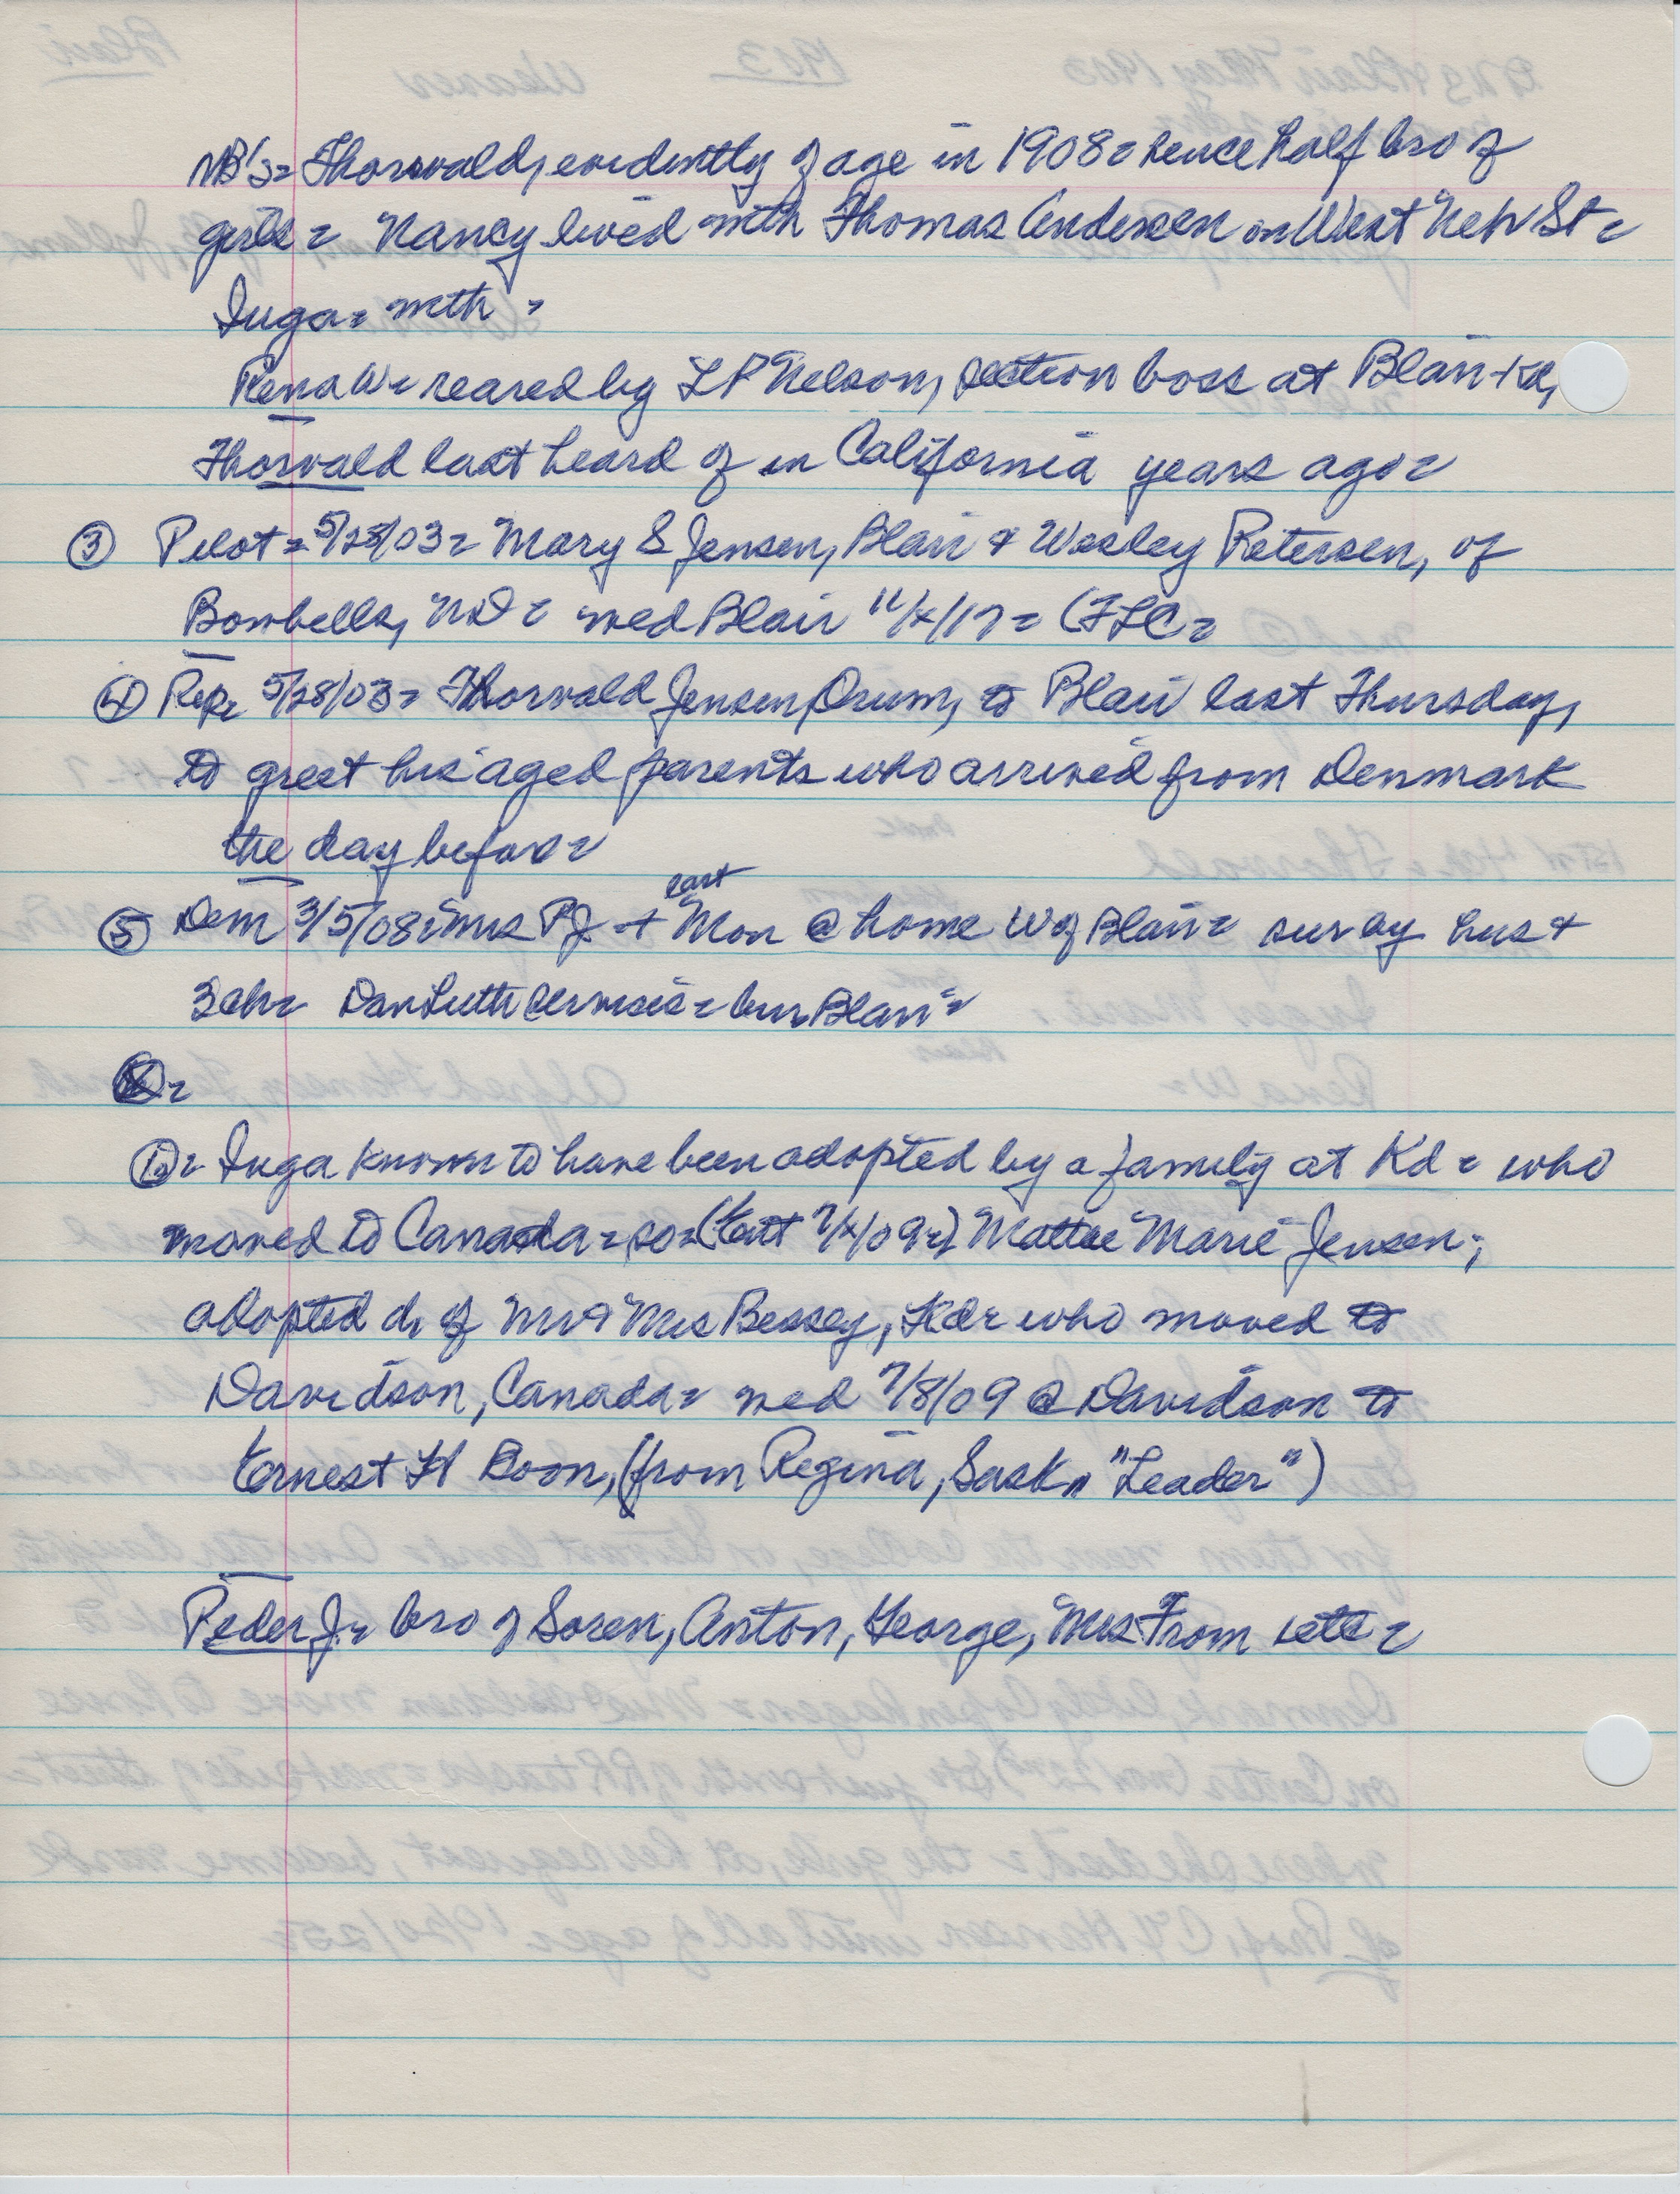 NB's = Thorvald, evidently of age in 1908 = hence half bro of
girls = Nancy lived with Thomas Andersen on West Neb St =
Inga = with =
Rena W = reared by L P Nelson, section boss at Blair + Kd,
Thorvald last heard of in California years ago =
③ Pilot = 5/28/03 = Mary S Jensen, Blair & Wesley Petersen, of
Bowbells, ND = wed Blair 11/4/17 = (FLC =
④ Rep = 5/28/03 = Thorvald Jensen, Orum, to Blair last Thursday,
to greet his aged parents who arrived from Denmark
the day before =
last
⑤ Dem 3/5/08 = Mrs PJ + Mon @ home W of Blair = surv by hus +
3 ch = Dan Luth services = bur Blair =
① = Inga known to have been adopted by a family at Kd = who
moved to Canada = so = (Ent 7/ /09 =) Mattie Marie Jensen;
adopted d. of Mr & Mrs Bessey, Kd = who moved to
Davidson, Canada = wed 7/8/09 @ Davidson to
Ernest H Boon, (from Regina, Sask, "Leader")
Peder J = bro of Soren, Anton, George, Mrs From